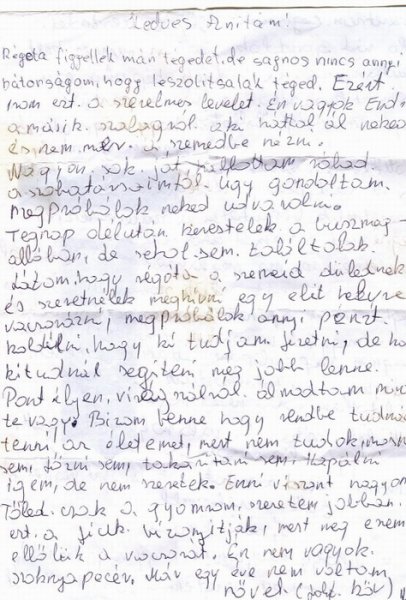 Kedves Anitám!
Régóta figyellek mán tégedet, de sajnos nincs annyi
bátorságom, hogy leszolitsalak téged. Ezért
irom ezt a szerelmes levelet. Én vagyok
a másik szalagnol aki háttal ál neked
és nem mer a szemedbe nézni.
Nagyon sok jót hallottam rólad
a szobatársaimtól. Ugy gondoltam
megpróbálok neked udvarolni.
Tegnap délután kerestelek a buszmeg-
állóban, de sehol sem találtalak.
Látom, hogy régóta a szemeid dülednek
és szeretnélek meghivni egy elit helyre
vacsorázni, megpróbálok annyi pénzt
koldulni, hogy ki tudjam fizetni, de ha
kitudnál segiteni még jobb lenne.
Pont ilyen virágszálról álmodtam mint
te vagy. Bizom benne hogy rendbe tudnád
tenni az életemet, mert nem tudok mosni
sem, főzni sem, takaritani sem. Kapálni
igem, de nem szeretek. Enni viszont nagyon
Tőled csak a gyomrom szeretem jobban.
ezt a fiúk bizonyitják, mert még ezen
ellólüik a vacsorát. Én nem vagyok
szoknyapecér. Már egy éve nem voltam
nővel (foly. köv)